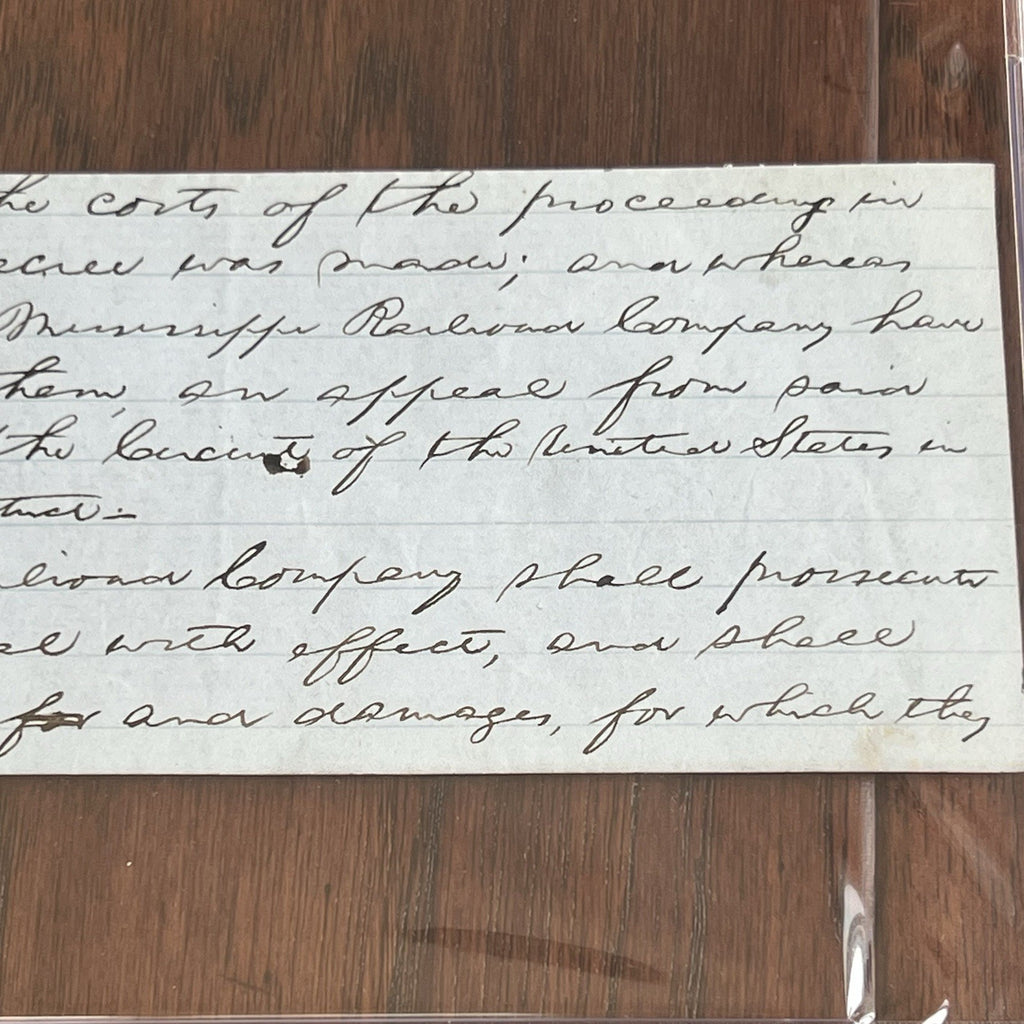 the costs of the proceeding in
ecree was made; and whereas
Mississippi Railroad Company have
them, an appeal from said
the Circuit of the United States in
trict.—
ilroad Company shall prosecute
al with effect, and shall
for and damages, for which they